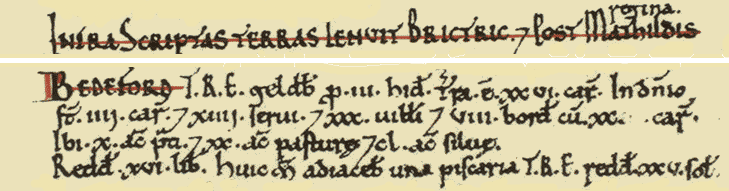 INFRA SCRIPTAS TERRAS TENUIT BRICTRIC. ⁊ Post Mathildis regina.
BEDEFORD T.R.E. geldb̄ p. III. hid̄. Tr̄a. ē. XXVI. car̄. In dn̄io
st̄. IIII. car̄. ⁊ XIIII. serui. ⁊ XXX. uilli ⁊ VIII. bord̄ cū. XX. car̄.
Ibi. X. ac̄ p̄ti. ⁊ XX. ac̄ pasturę ⁊ CL. ac̄ siluę.
Redd̄. XVI. lib̄. Huic m̄ adiaceb̄ una piscaria T.R.E. redd̄. XXV. sol̄.